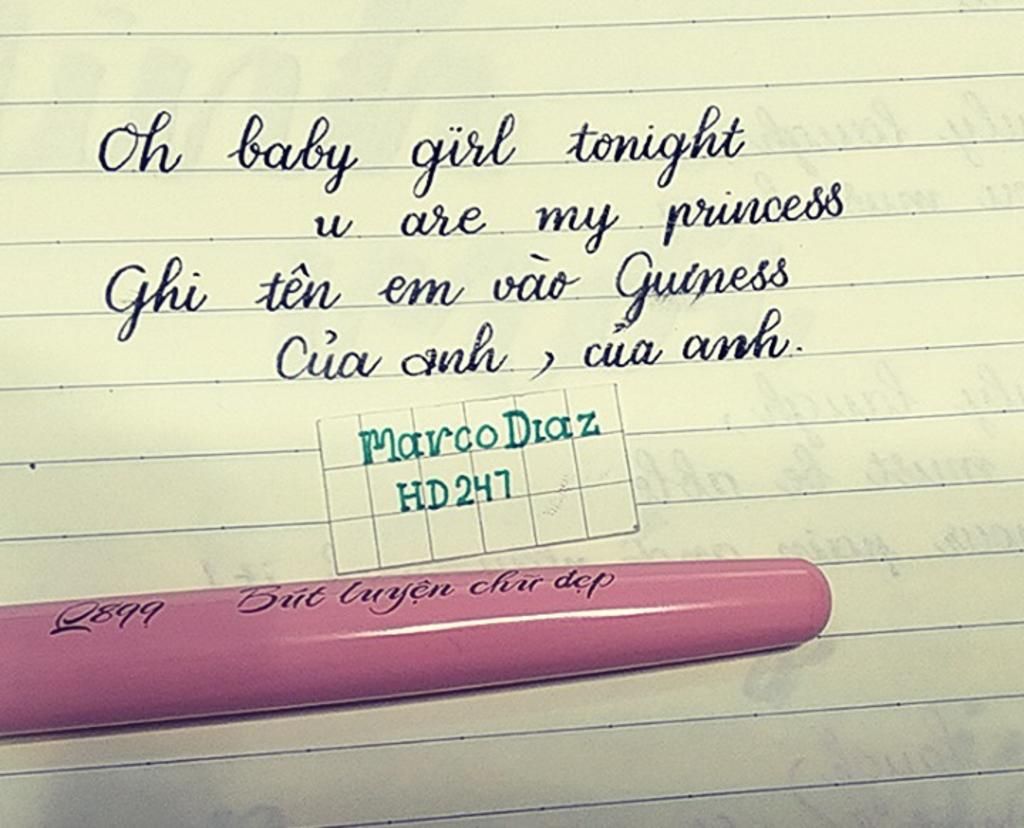 Oh baby girl tonight
u are my princess
Ghi tên em vào Guiness
Của anh, của anh.
Marco Diaz
HD247
Q899 Bút luyện chữ đẹp